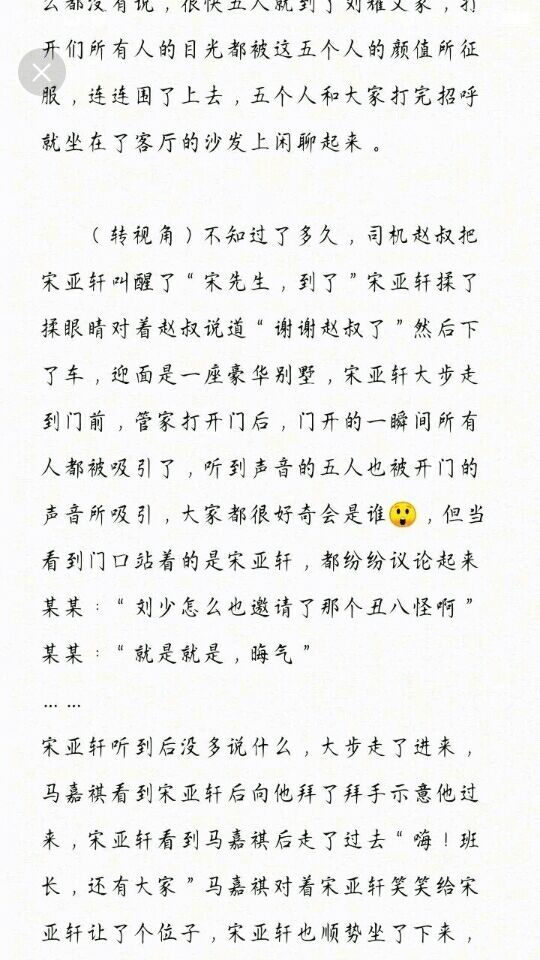 么都没有说，很快五人就到了刘耀文家，打
开们所有人的目光都被这五个人的颜值所征
服，连连围了上去，五个人和大家打完招呼
就坐在了客厅的沙发上闲聊起来。
（转视角）不知过了多久，司机赵叔把
宋亚轩叫醒了“宋先生，到了”宋亚轩揉了
揉眼睛对着赵叔说道“谢谢赵叔了”然后下
了车，迎面是一座豪华别墅，宋亚轩大步走
到门前，管家打开门后，门开的一瞬间所有
人都被吸引了，听到声音的五人也被开门的
声音所吸引，大家都很好奇会是谁😲，但当
看到门口站着的是宋亚轩，都纷纷议论起来
某某：“刘少怎么也邀请了那个丑八怪啊”
某某：“就是就是，晦气”
……
宋亚轩听到后没多说什么，大步走了进来，
马嘉祺看到宋亚轩后向他拜了拜手示意他过
来，宋亚轩看到马嘉祺后走了过去“嗨！班
长，还有大家”马嘉祺对着宋亚轩笑笑给宋
亚轩让了个位子，宋亚轩也顺势坐了下来，